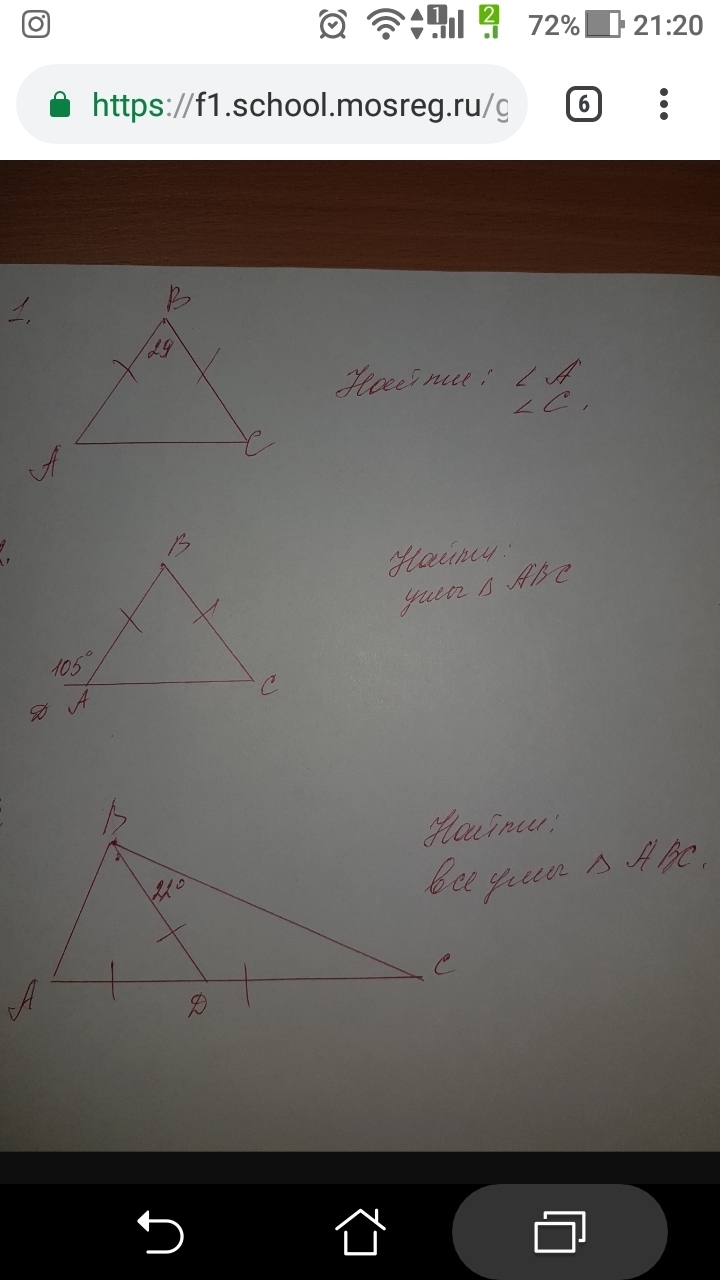 1 2 72% 21:20
https://f1.school.mosreg.ru/g
6
1.
B
29
A
C
Найти: ∠A
∠C.
B
105°
D A
C
Найти:
углы △ ABC
B
22°
A
D
C
Найти:
все углы △ ABC.